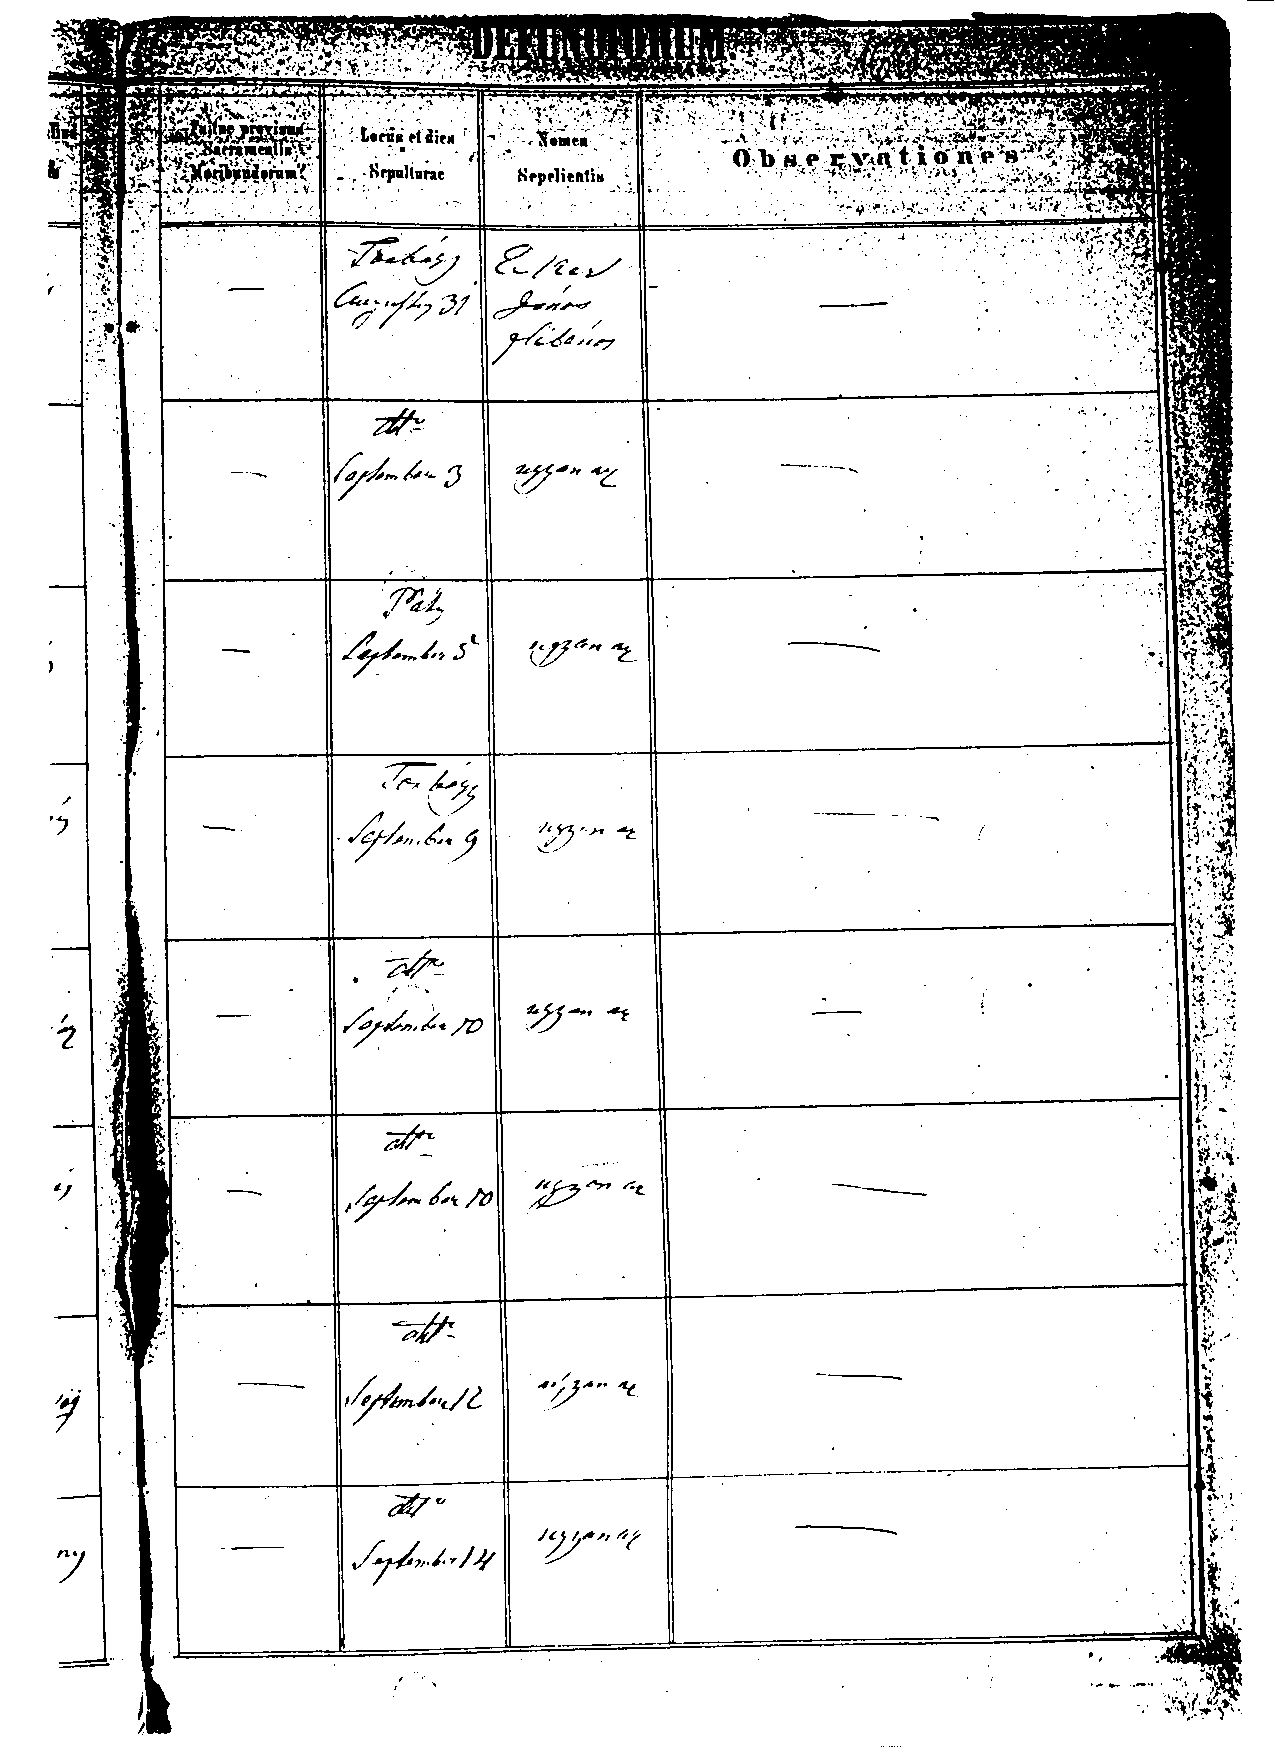 DEFUNCTORUM
Fuitne provisus
Sacramentis
Moribundorum?
Locus et dies
Sepulturae
Nomen
Sepelientis
Observationes
—
Torbágy
Augustus 31
János
plébános
—
—
dtto
September 3
ugyan az
—
—
Páty
September 5
ugyan az
—
—
Torbágy
September 9
ugyan az
—
—
dtto
September 10
ugyan az
—
—
dtto
September 10
ugyan az
—
—
dtto
September 12
ugyan az
—
—
dtto
September 14
ugyan az
—